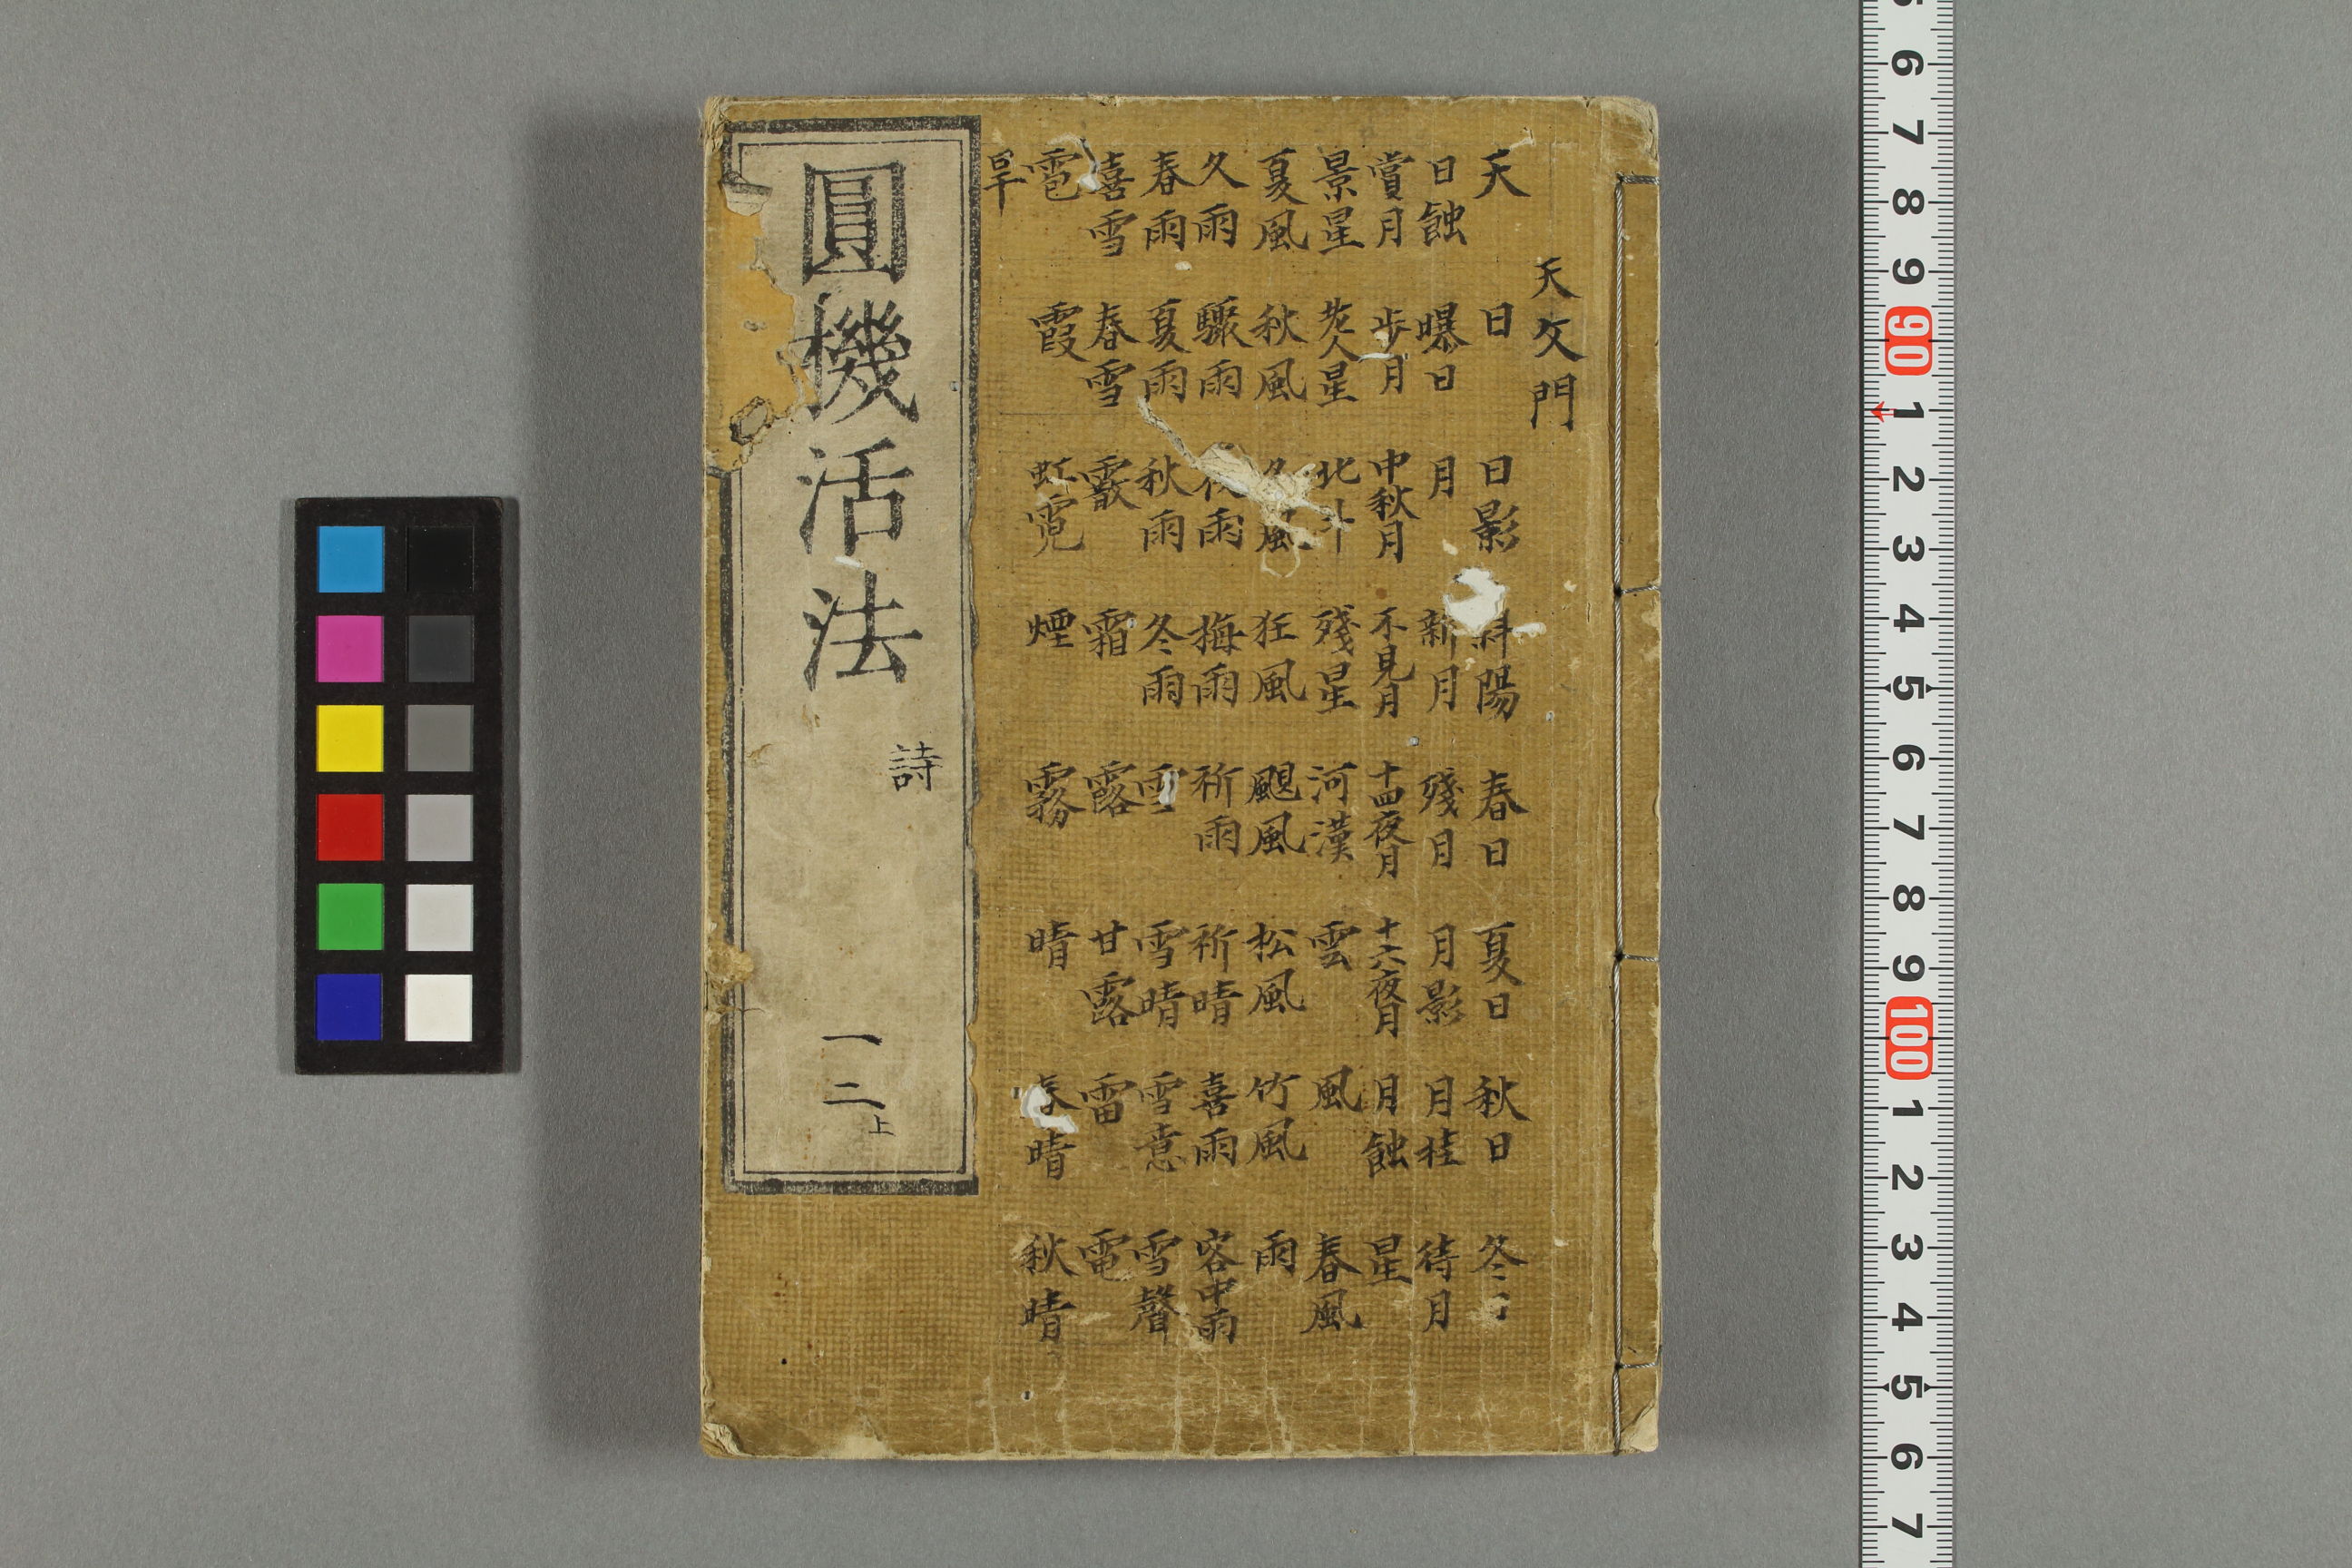 天文門
天 日 日影 斜陽 春日 夏日 秋日 冬日
日蝕 曝日 月 新月 殘月 月影 月桂 待月
賞月 步月 中秋月 不見月 十四夜月 十六夜月 月蝕 星
景星 老人星 北斗 殘星 河漢 雲 風 春風
夏風 秋風 冬風 狂風 颶風 松風 竹風 雨
久雨 驟雨 夜雨 梅雨 祈雨 祈晴 喜雨 客中雨
春雨 夏雨 秋雨 冬雨 雪 雪晴 雪意 雪聲
喜雪 春雪 霰 霜 露 甘露 雷 電
雹 霞 虹霓 煙 霧 晴 春晴 秋晴
旱
圓機活法 詩 一二上
6 7 8 9 90 1 2 3 4 5 6 7 8 9 100 1 2 3 4 5 6 7